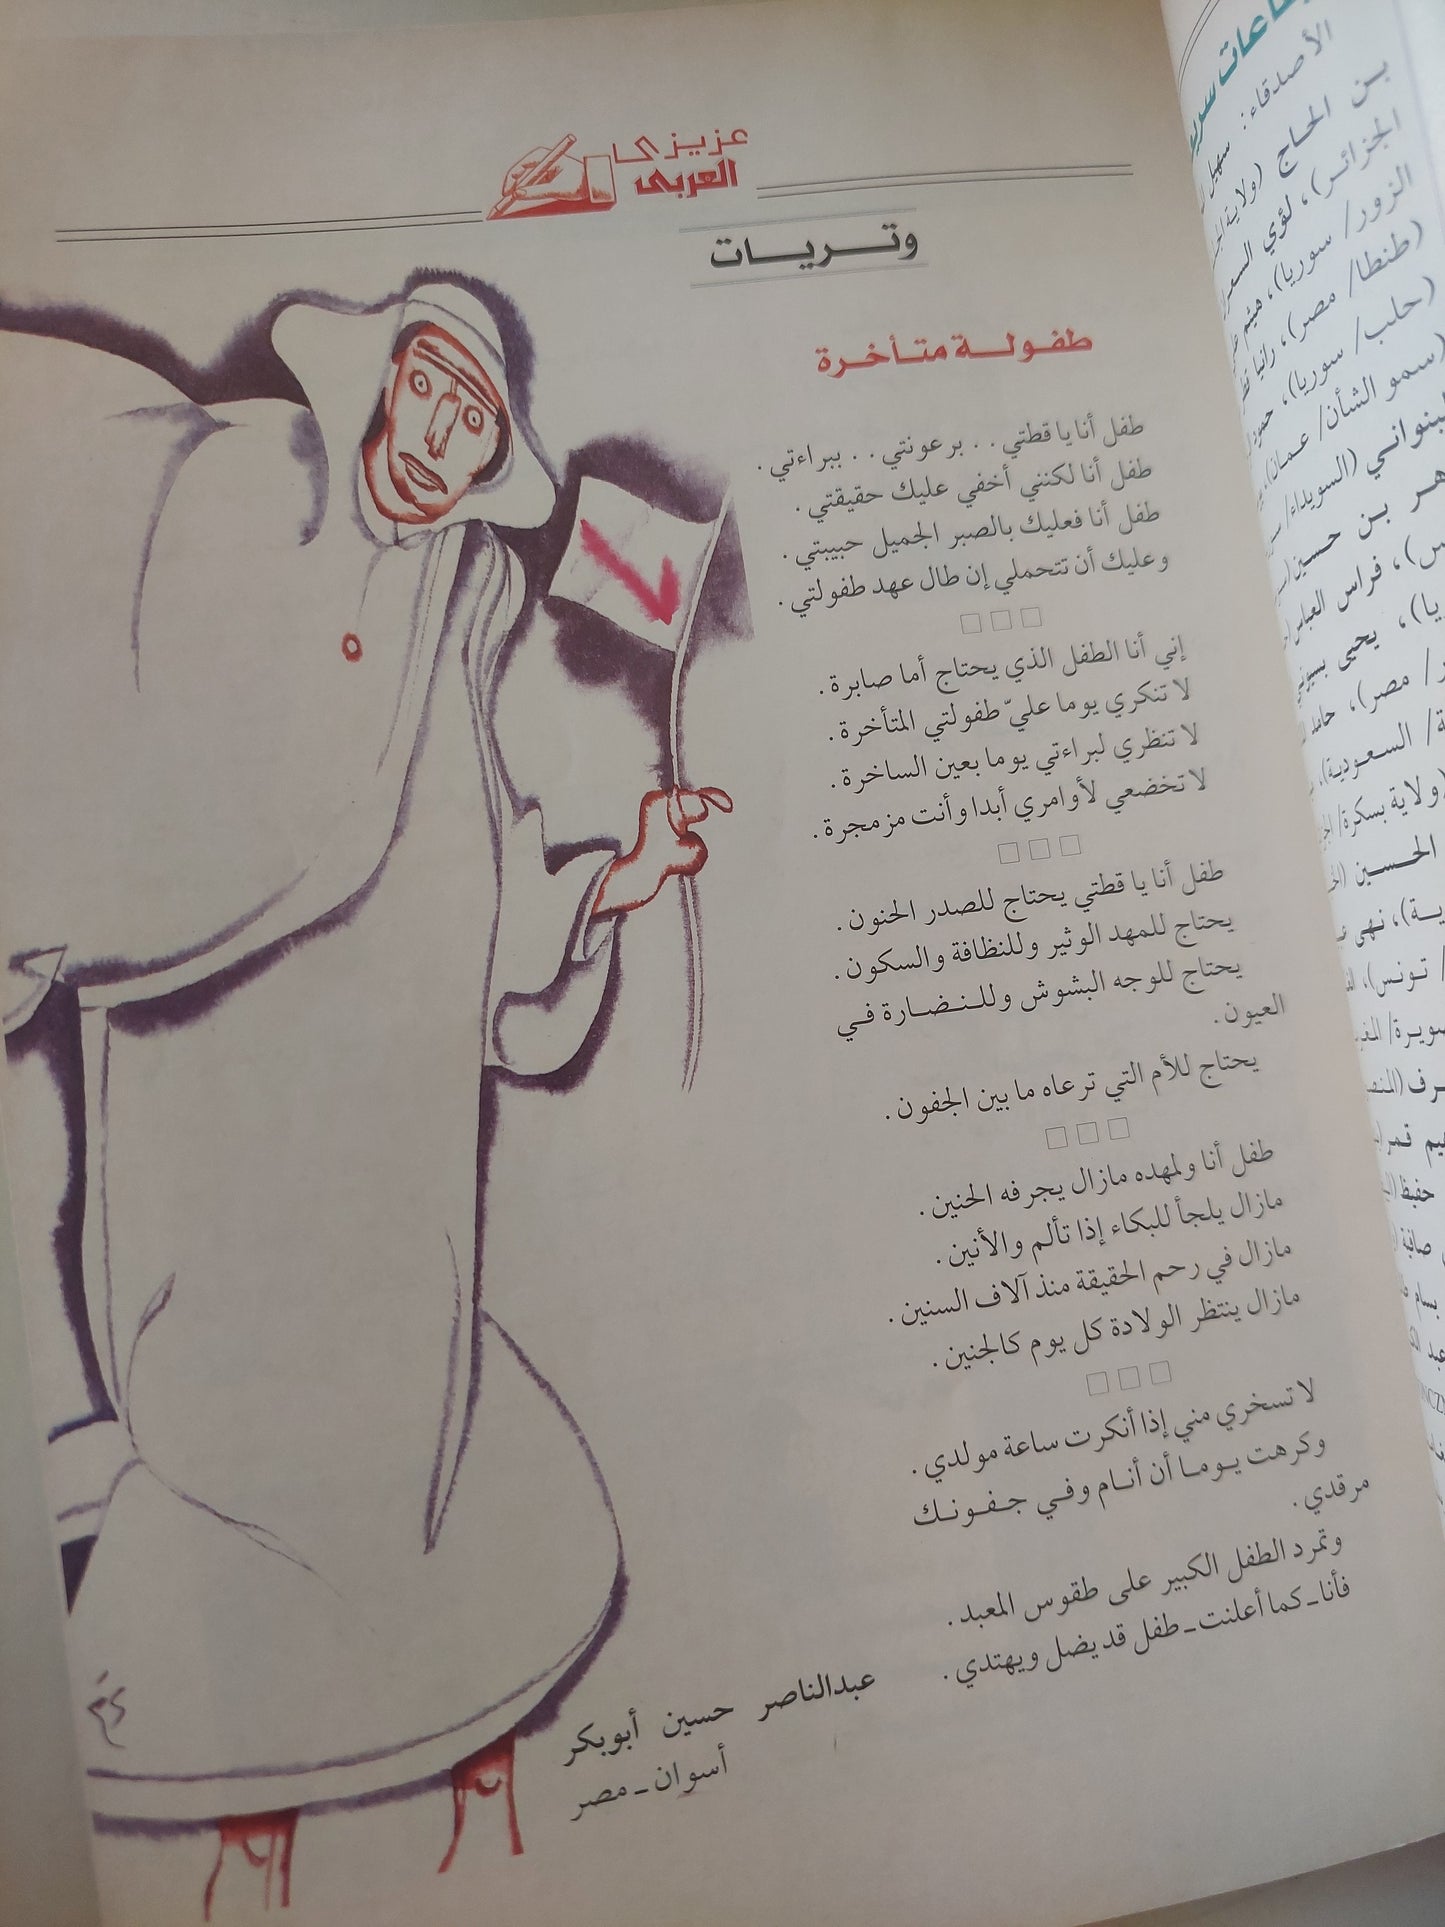 عزيزي
العربي
وتريات
طفولة متأخرة
طفل أنا يا قطتي . . برعونتي . . ببراءتي .
طفل أنا لكنني أخفي عليك حقيقتي .
طفل أنا فعليك بالصبر الجميل حبيبتي .
وعليك أن تتحملي إن طال عهد طفولتي .
إني أنا الطفل الذي يحتاج أما صابرة .
لا تنكري يوما عليّ طفولتي المتأخرة .
لا تنظري لبراءتي يوما بعين الساخرة .
لا تخضعي لأوامري أبدا وأنت مزمجرة .
طفل أنا يا قطتي يحتاج للصدر الحنون .
يحتاج للمهد الوثير وللنظافة والسكون .
يحتاج للوجه البشوش وللنضارة في
العيون .
يحتاج للأم التي ترعاه ما بين الجفون .
طفل أنا ولمهده مازال يجرفه الحنين .
مازال يلجأ للبكاء إذا تألم والأنين .
مازال في رحم الحقيقة منذ آلاف السنين .
مازال ينتظر الولادة كل يوم كالجنين .
لا تسخري مني إذا أنكرت ساعة مولدي .
وكرهت يوما أن أنام وفي جفونك
مرقدي .
وتمرد الطفل الكبير على طقوس المعبد .
فأنا ـ كما أعلنت ـ طفل قد يضل ويهتدي .
عبدالناصر حسين أبوبكر
أسوان ـ مصر
الأصدقاء: سهيل
بن الحاج (ولاية
الجزائر)، لؤي
الزور/ سوريا)، هيثم
(طنطا/ مصر)، رانيا
(حلب/ سوريا)، حمود
(سمو الشأن/ عمان)،
(السويداء/
بن حسين
فراس العباس
يحيى بسيوني
/ مصر)، حامد
/ السعودية)،
(ولاية بسكرة/
الحسين
نهى
/ تونس)،
حفيظ
بسام